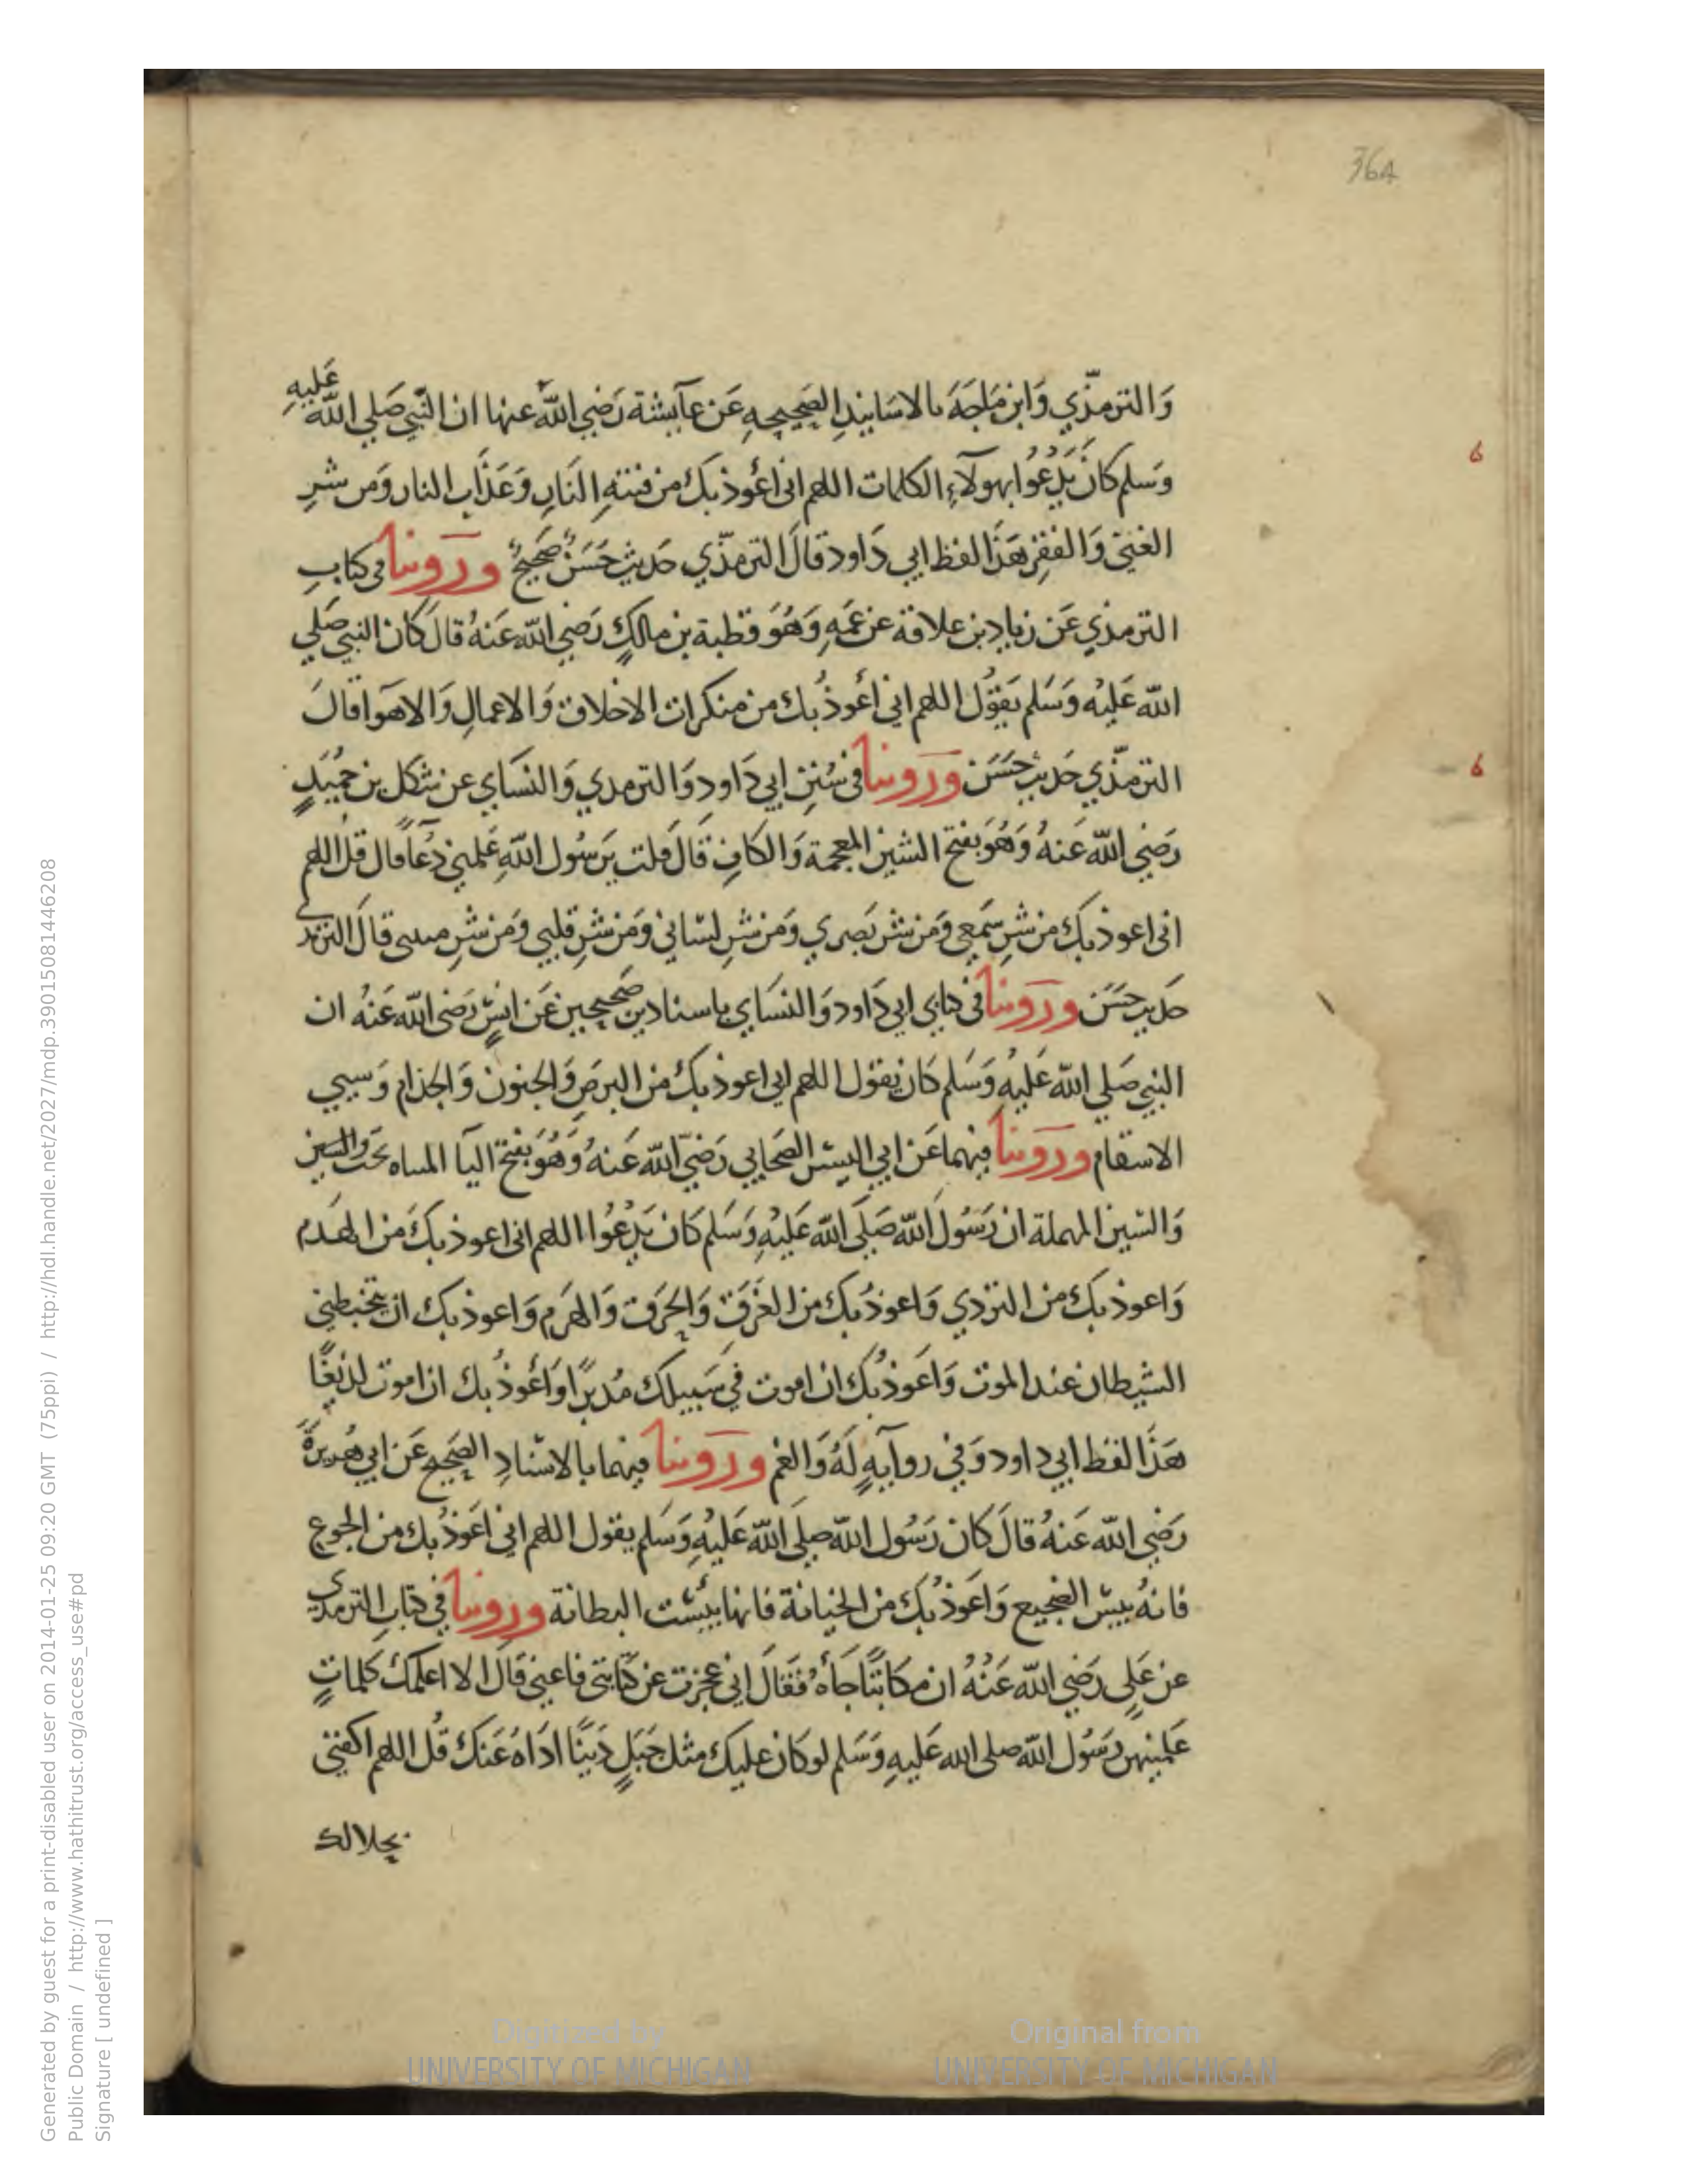 364
وَالترمذّي وَابن مَاجَهَ بالاسَانِيدِ الصَحِيحِهِ عَن عَآيشة رَضي اللّه عنها ان النَّبي صَلي اللّه عَليهِ
وَسَلم كانَ يَدْعُوا بهولآءِ الكلمات اللهم انى اعُوذ بكَ من فتنهِ النَارِ وَعَذَابِ النار وَمن شرِ
الغنيَ وَالفقرِ هَذا لفظ ابي دَاود قالَ الترمذّي حَديث حَسَنٌ صَحيحٌ وروينا فى كتابِ
الترمذي عَن زيادِ بن علاقة عن عَمَهِ وَهُوَ قطبة بن مالكٍ رَضي اللّه عَنهُ قال كان النبي صَلي
اللّه عَليْه وَسَلم يَقوُل اللهم اني اعُوذُ بك من منكرات الاخلاق وَالاعمالِ وَالاهوَا قالَ
الترمذّي حَديث حَسَن وروينا فى سُننِ ابي دَاود وَالترمدي وَالنسَاي عن شكل بن حمُيَدٍ
رَضِي اللّه عَنهُ وَهُوَ بفتح الشين المعجمة وَالكافِ قَالَ قلت يَرسُول اللّهِ عَلمني دُعَاً قال قلُ اللهم
انى اعوذ بكَ من شرِ سَمَعِي وَمن شر بَصري وَمن شرِ لسَاني وَمن شرِ قلبي وَمن شرِ مىىى قالَ الترمذى
حَديث حسَن وروينا فى كتابى ابي دَاود وَالنسَاي باسنادين صَحيحين عَن انسٍ رَضى اللّه عَنهُ ان
النبي صَلي اللّه عَليهُ وَسَلم كَان يَقول اللهم اني اعوذ بكَ من البرصِ وَالجنون وَالجذام وَسيي
الاسقام وروينا فيهما عَن ابي اليسَر الصَحابي رَضيَ اللّه عَنهُ وَهُوَ بفتح اليَا المساه تحَت وَالسين
وَالسَين المهملة ان رَسُول اللّه صَلي اللّه عَليْهِ وَسَلم كَان يَدْعُوا اللهم انى اعوذ بكَ من الهَدم
وَاعوذ بكَ من التردي وَاعوذُ بكَ من الغرَقَ وَالحرَقَ وَالهرَم وَاعوذ بكَ ان يتخبطني
الشيطان عند الموت وَاعَوذُ بكَ ان اموت في سَبيلك مُدبرًا وَاعُوذُ بك ان اموت لديغًا
هَذَا لفظ ابي داود وَفي روآيهٍ لَهُ وَالغم وروينا فيهما بالاسْنادِ الصَحِيحِ عَن ابي هُريرَةَ
رَضي اللّه عَنهُ قالَ كان رَسُول اللّه صلي اللّه عَليْهِ وَسَلم يقول اللهم اني اعَوذُ بك من الجوع
فانهُ بيسَ الضجيع وَاعَوذُ بكَ من الخيانة فانها بيُسَت البطانة وروينا في كتابِ الترمدي
عن عَلِي رَضِي اللّه عَنْهُ ان مكاتبًا جَأَهُ فقَالَ اني عجزت عن كتابتى فاعني قَالَ الا اعلمك كلماتٍ
عَلمنيهن رَسُول اللّه صلى الله عَليهِ وَسَلم لو كان عليك مثل جَبَلٍ دَينًا ادَاهُ عَنكَ قُل اللهم اكفني
بجلالك
Generated by guest for a print-disabled user on 2014-01-25 09:20 GMT (75ppi) / http://hdl.handle.net/2027/mdp.39015081446208
Public Domain / http://www.hathitrust.org/access_use#pd
Signature [ undefined ]
Digitized by
UNIVERSITY OF MICHIGAN
Original from
UNIVERSITY OF MICHIGAN